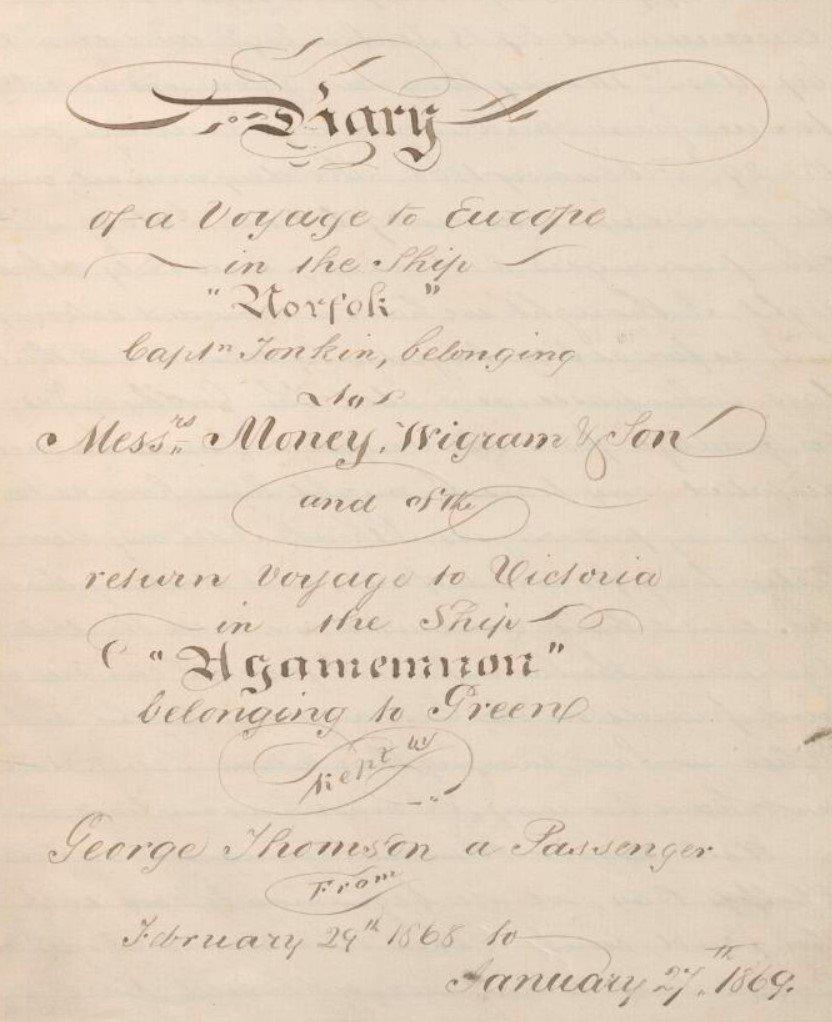 Diary
of a Voyage to Europe
in the Ship
"Norfok"
Captn Tonkin, belonging
to
Messrs Money, Wigram & Son
and of the
return Voyage to Victoria
in the Ship
"Agamemnon"
belonging to Green
Kept by
George Thomson a Passenger
From
February 29th 1868 to
January 27th 1869.